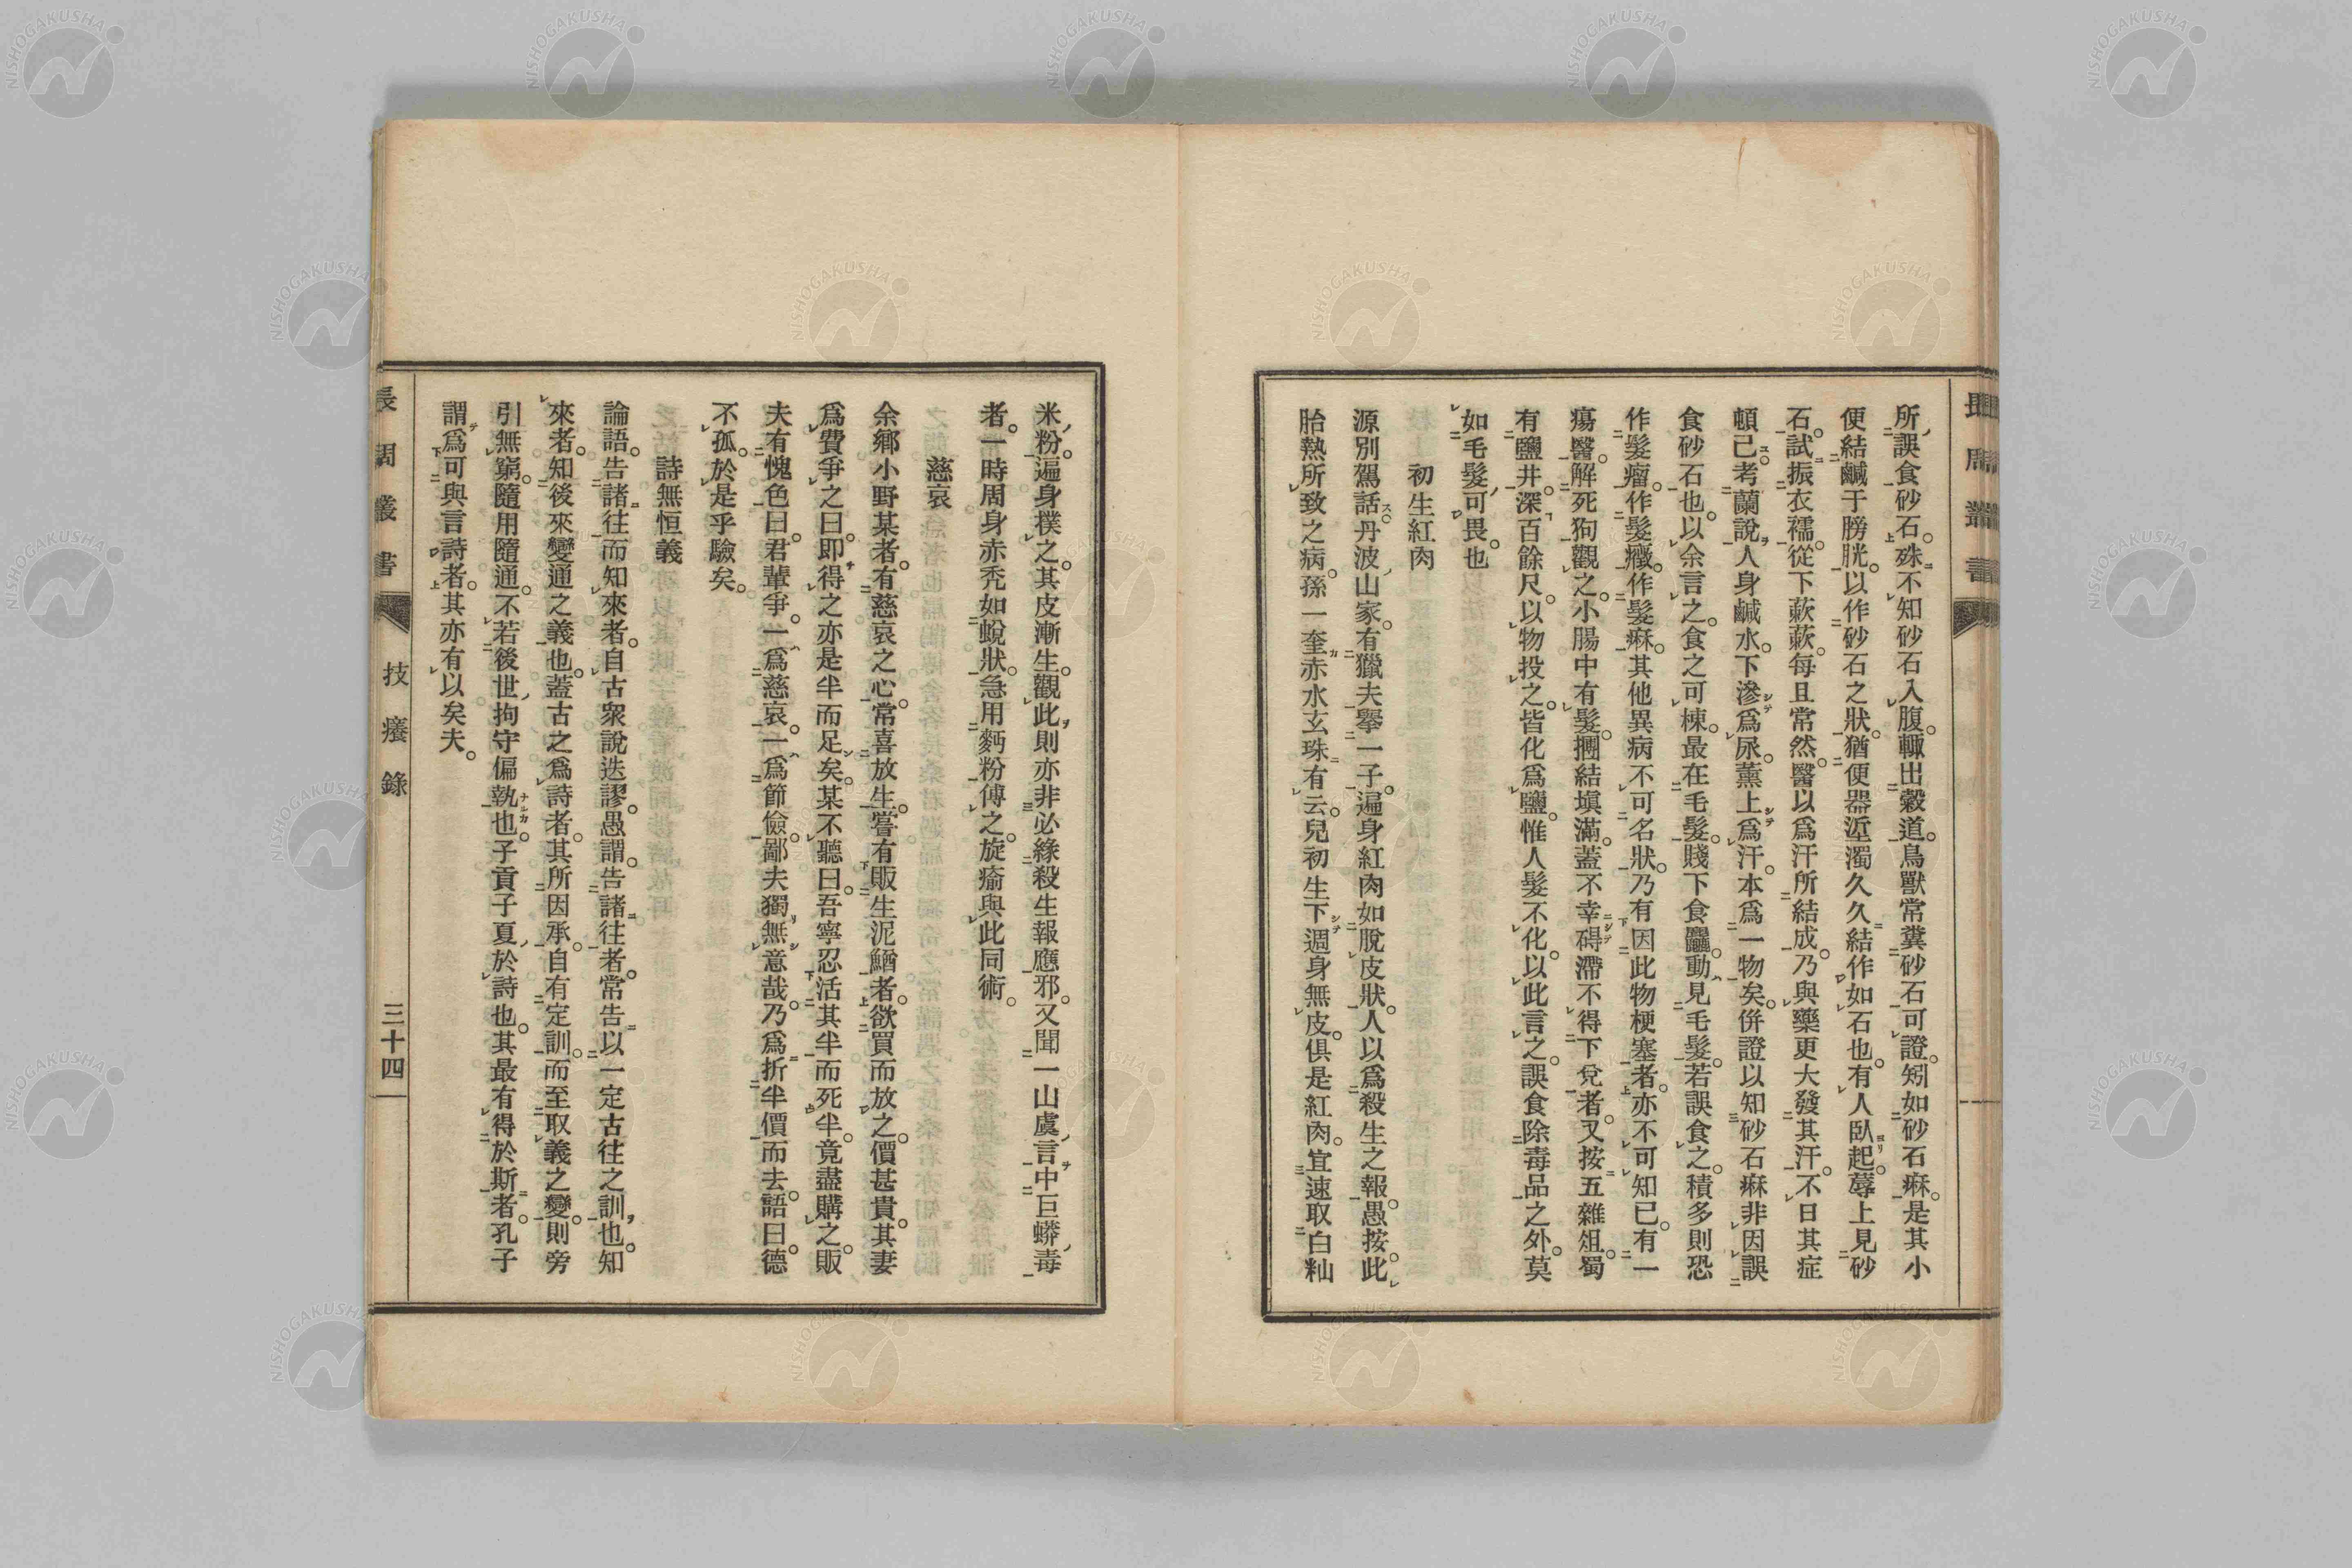 所誤食砂石。殊不知砂石入腹。輙出穀道。鳥獸常糞砂石可證。矧如砂石痳。是其小
便結鹹于膀胱。以作砂石之狀。猶便器埿濁久久結作如石也。有人臥起。蓐上見砂
石。試振衣襦。從下蔌蔌。每旦常然。醫以爲汗所結成。乃與藥更大發其汗。不日其症
頓已。考蘭說。人身鹹水。下滲爲尿。薰上爲汗。本爲一物矣。併證以知砂石痳非因誤
食砂石也。以余言之。食之可悚。最在毛髮。賤下食麤。動見毛髮。若誤食之。積多則恐
作髮瘤。作髮癥。作髮痳。其他異病不可名狀。乃有因此物梗塞者。亦不可知已。有一
瘍醫。解死狗觀之。小腸中有髮。摶結塡滿。蓋不幸碍滯不得下兌者。又按五雜俎。蜀
有鹽井。深百餘尺。以物投之。皆化爲鹽。惟人髮不化。以此言之。誤食除毒品之外。莫
如毛髮可畏也
初生紅肉
源別駕話。丹波山家。有獵夫擧一子。遍身紅肉如脫皮狀。人以爲殺生之報。愚按。此
胎熱所致之病。孫一奎赤水玄珠有云。兒初生下週身無皮。俱是紅肉。宜速取白籼
米粉。遍身撲之。其皮漸生。觀此則亦非必緣殺生報應邪。又聞一山虞言中巨蟒毒
者。一時周身赤禿如蛻狀。急用麪粉傅之。旋瘉與此同術。
慈哀
余鄉小野某者。有慈哀之心。常喜放生。嘗有販生泥鰌者。欲買而放之。價甚貴。其妻
爲費爭之曰。即得之亦是半而足矣。某不聽曰。吾寧忍活其半而死半。竟盡購之。販
夫有愧色曰。君輩爭。一爲慈哀。一爲節儉。鄙夫獨無意哉。乃爲折半價而去。語曰。德
不孤。於是乎驗矣。
詩無恒義
論語。告諸往而知來者。自古衆說迭謬。愚謂。告諸往者。常告以一定古往之訓也。知
來者。知後來變通之義也。蓋古之爲詩者。其所因承。自有定訓。而至取義之變。則旁
引無窮。隨用隨通。不若後世拘守偏執也。子貢子夏於詩也。其最有得於斯者。孔子
謂爲可與言詩者。其亦有以矣夫。
長周叢書
技癢錄
三十四